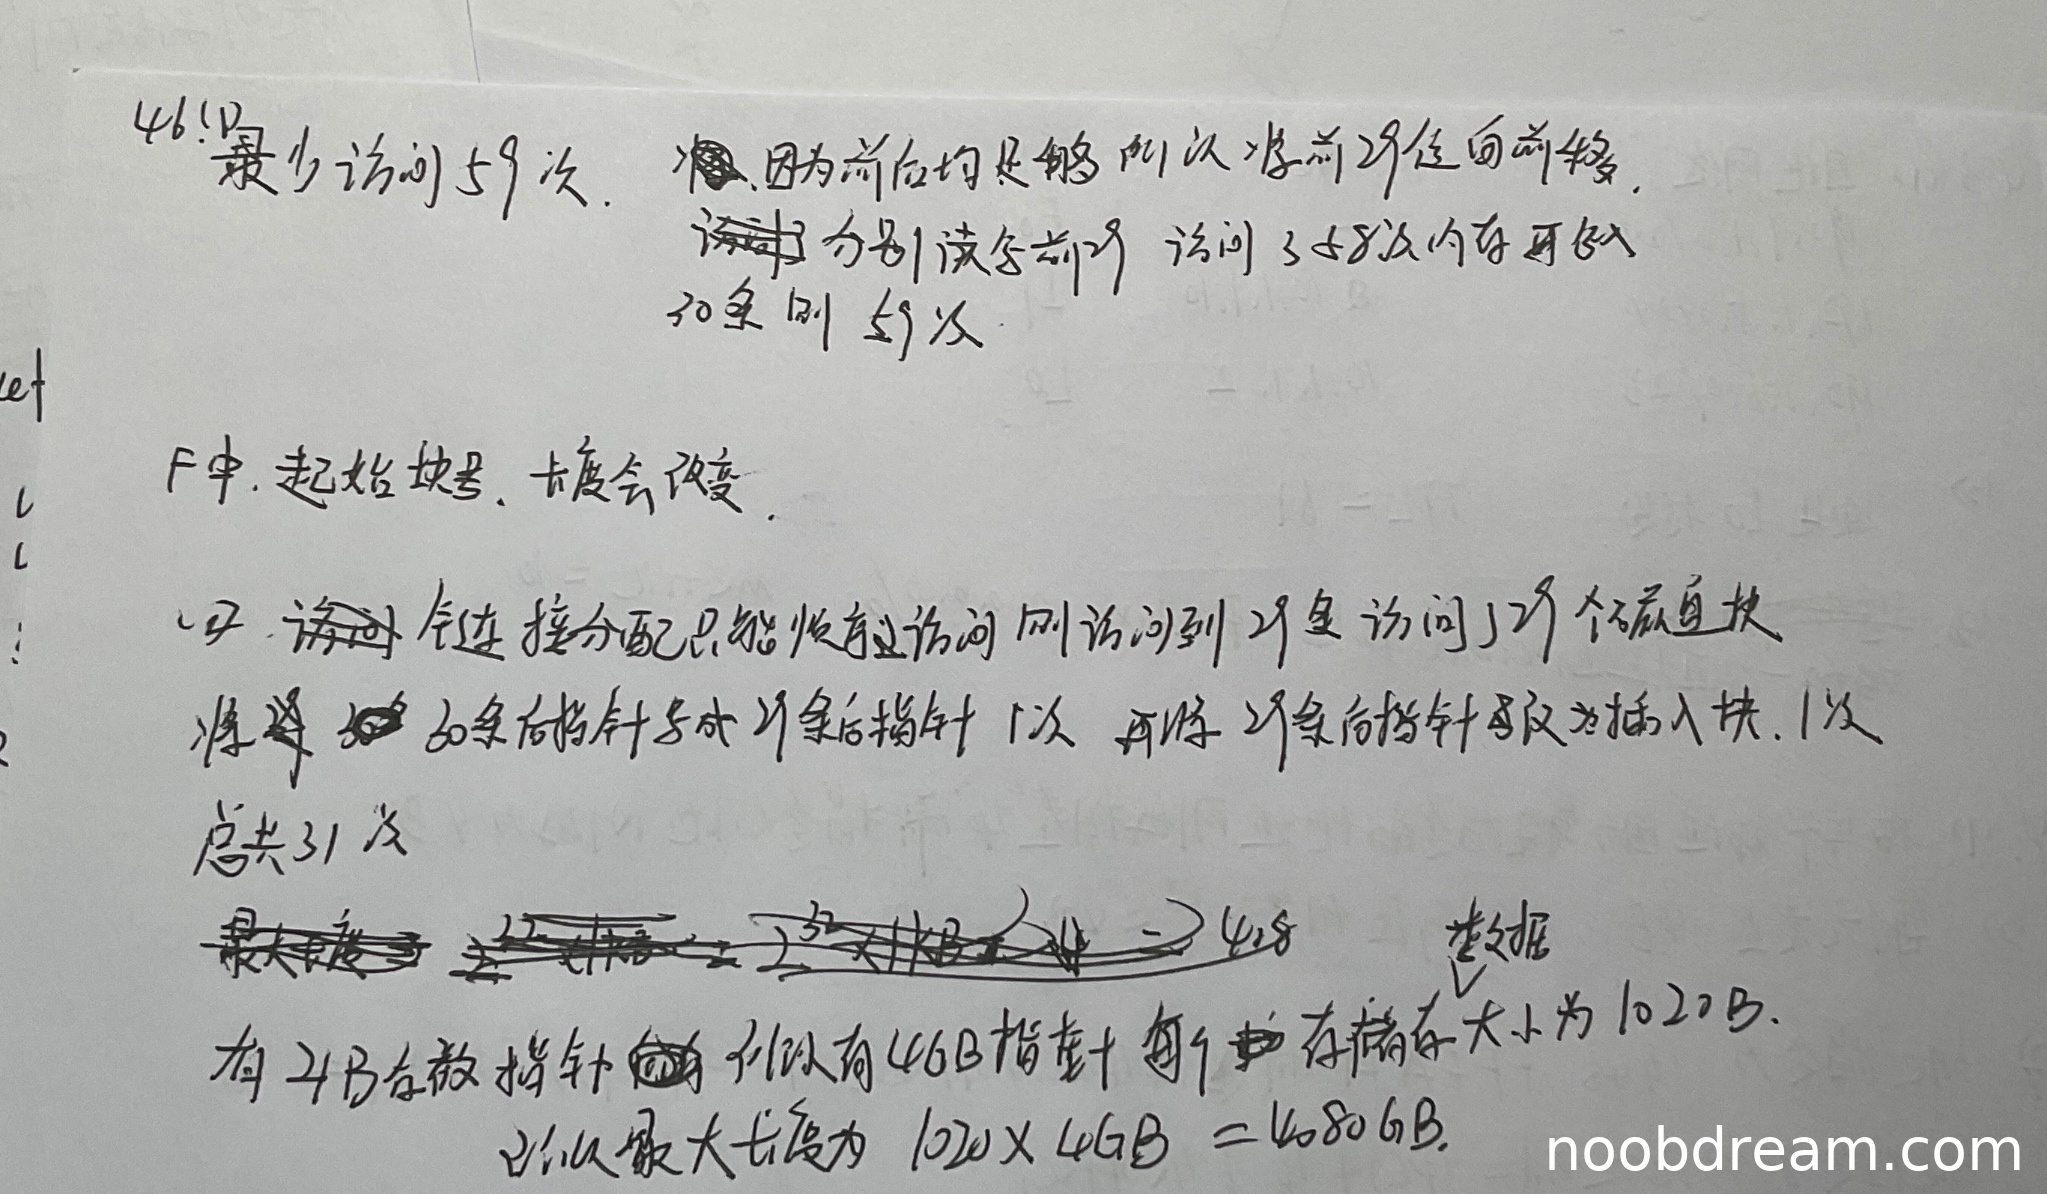 46. 1)
最少访问59次. 因为前后均足够 所以将前29位向前移.
分别读写前29 访问了58次内存再写入
30条 则 59次.
F中. 起始块号. 长度会改变.
(2) 链连接分配只能顺序访问 则访问到29条 访问了29个磁盘块
将 30条后指针写成 29条后指针 1次 再将 29条后指针改为插入块. 1次
总共31次
数据
有4B存放指针 所以有4GB指针 每个 存储 大小为1020B.
所以最大长度为 1020×4GB = 4080GB.
noobdream.com